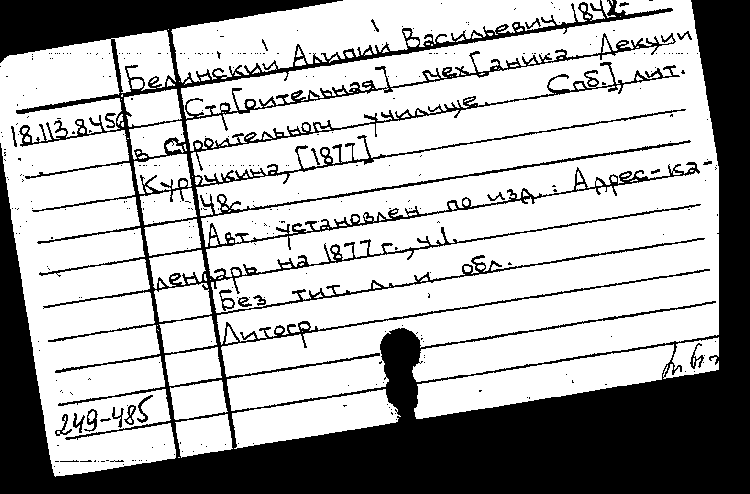 Белинский, Алипий Васильевич, 1842-
18.113.8.456.
Стр[оительная] мех[аника. Лекции
в строительном училище. Спб.], лит.
Курочкина, [1877].
48с.
Авт. установлен по изд.: Адрес-ка-
лендарь на 1877 г., ч.1.
Без тит. л. и обл.
Литогр.
249-485